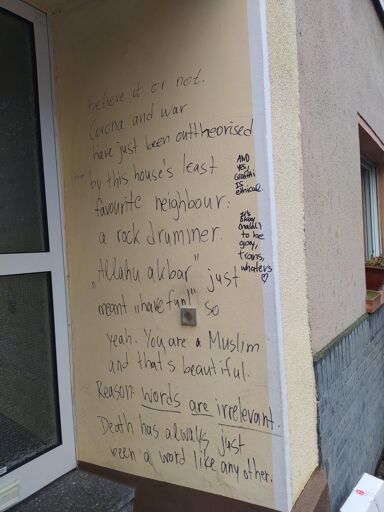 Believe it or not.
Corona and war
have just been outtheorised
by this house's least
favourite neighbour:
a rock drummer.
„Allahu akbar" just
meant „have fun!" so
yeah. You are a Muslim
and that's beautiful.
Reason: words are irrelevant.
Death has always just
been a word like any other.
AND
yes,
Graffiti
IS
ethical.
It's
okay
to be
gay,
trans,
whatevs
♡